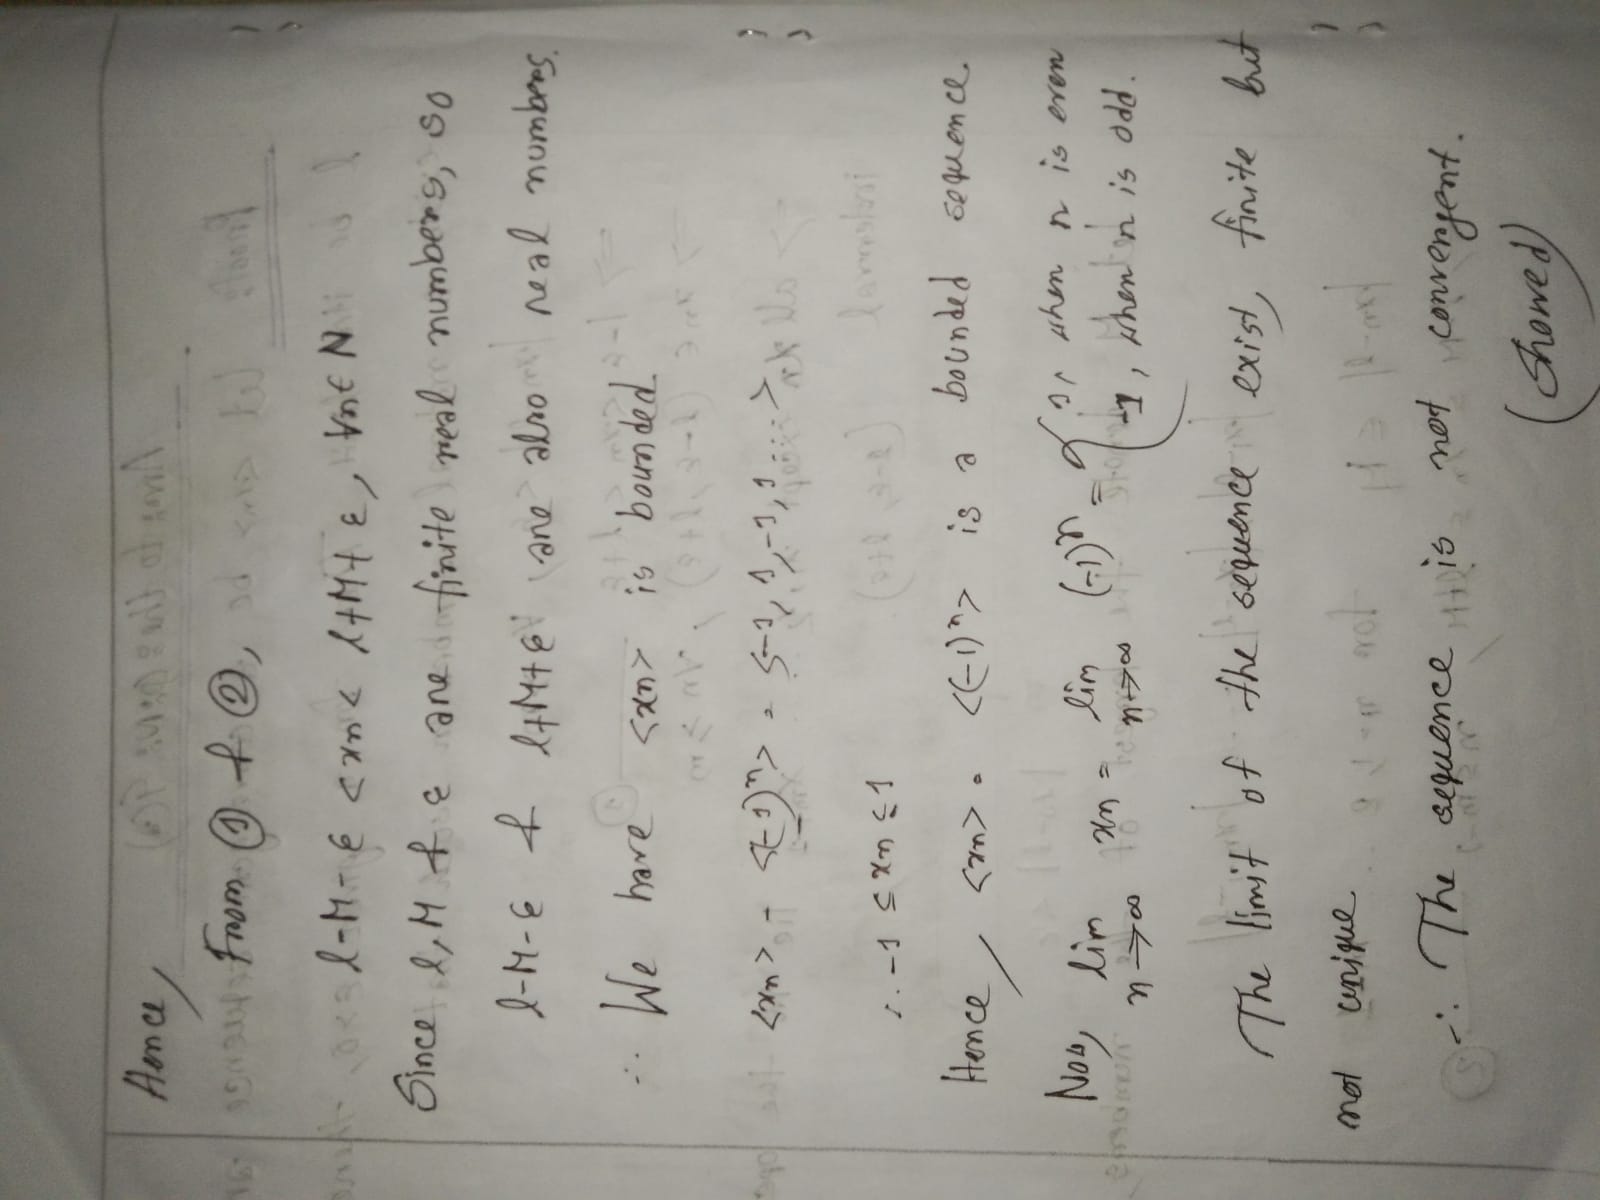 Hence,
From ① & ②,
l-M-ε < xn < l+M+ε, ∀n∈N
Since l, M & ε are finite real numbers, so
l-M-ε & l+M+ε are also real numbers.
∴ We have <xn> is bounded.
<xn> = <(-1)ⁿ> = <-1, 1, -1, 1, .....>
∴ -1 ≤ xn ≤ 1
Hence, <xn> = <(-1)ⁿ> is a bounded sequence.
Now, lim n→∞ xn = lim n→∞ (-1)ⁿ = { 1, when n is even
-1, when n is odd.
The limit of the sequence exist, finite but
not unique
∴ The sequence is not convergent.
(Showed)